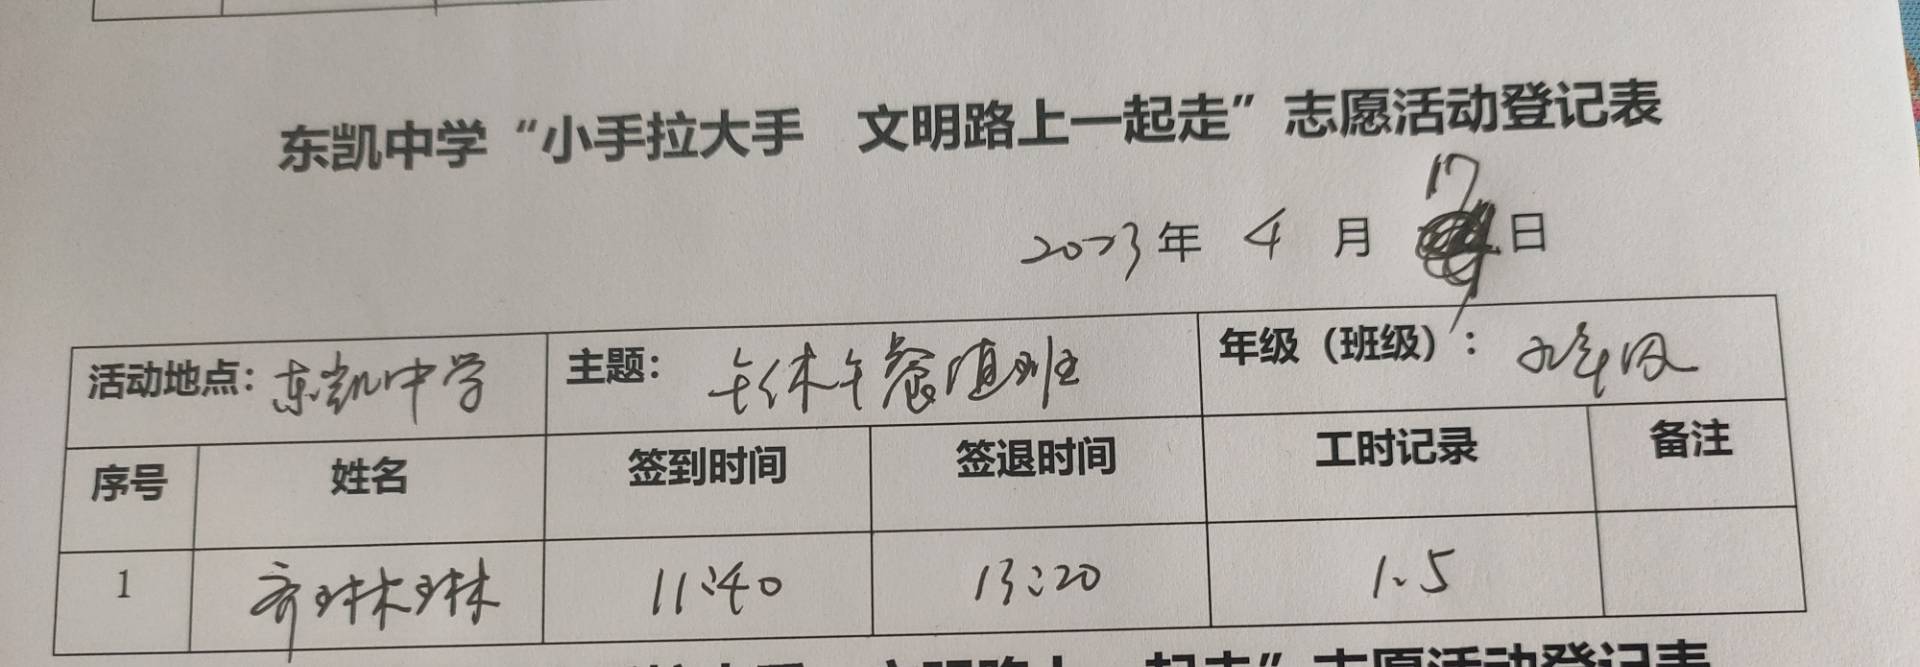 东凯中学“小手拉大手 文明路上一起走”志愿活动登记表
17
2023年 4 月 日
活动地点：东凯中学 主题： 午休午餐值班 年级（班级）： 九年级
序号 姓名 签到时间 签退时间 工时记录 备注
1 齐琳琳 11:40 13:20 1.5
文明路上一起走”志愿活动登记表